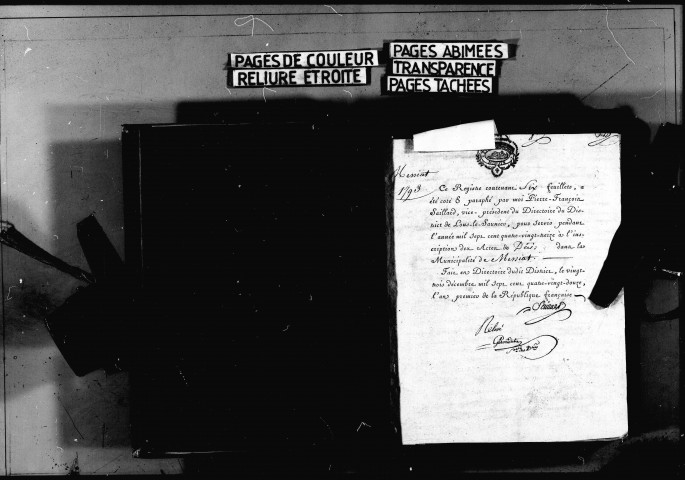 PAGES DE COULEUR
RELIURE ETROITE
PAGES ABIMEES
TRANSPARENCE
PAGES TACHEES
Messiat
1793
Ce Registre contenant Six feuillets, a
été coté & paraphé par moi Pierre-François
Gaillard, vice-président du Directoire du Dis-
trict de Lons-le-Saunier, pour servir pendant
l'année mil sept cent quatre-vingt-treize à l'ins-
cription des Actes de Décès dans la
Municipalité de Messiat.
Fait en Directoire dudit District, le vingt
trois décembre mil sept cent quatre-vingt-douze,
l'an premier de la République française